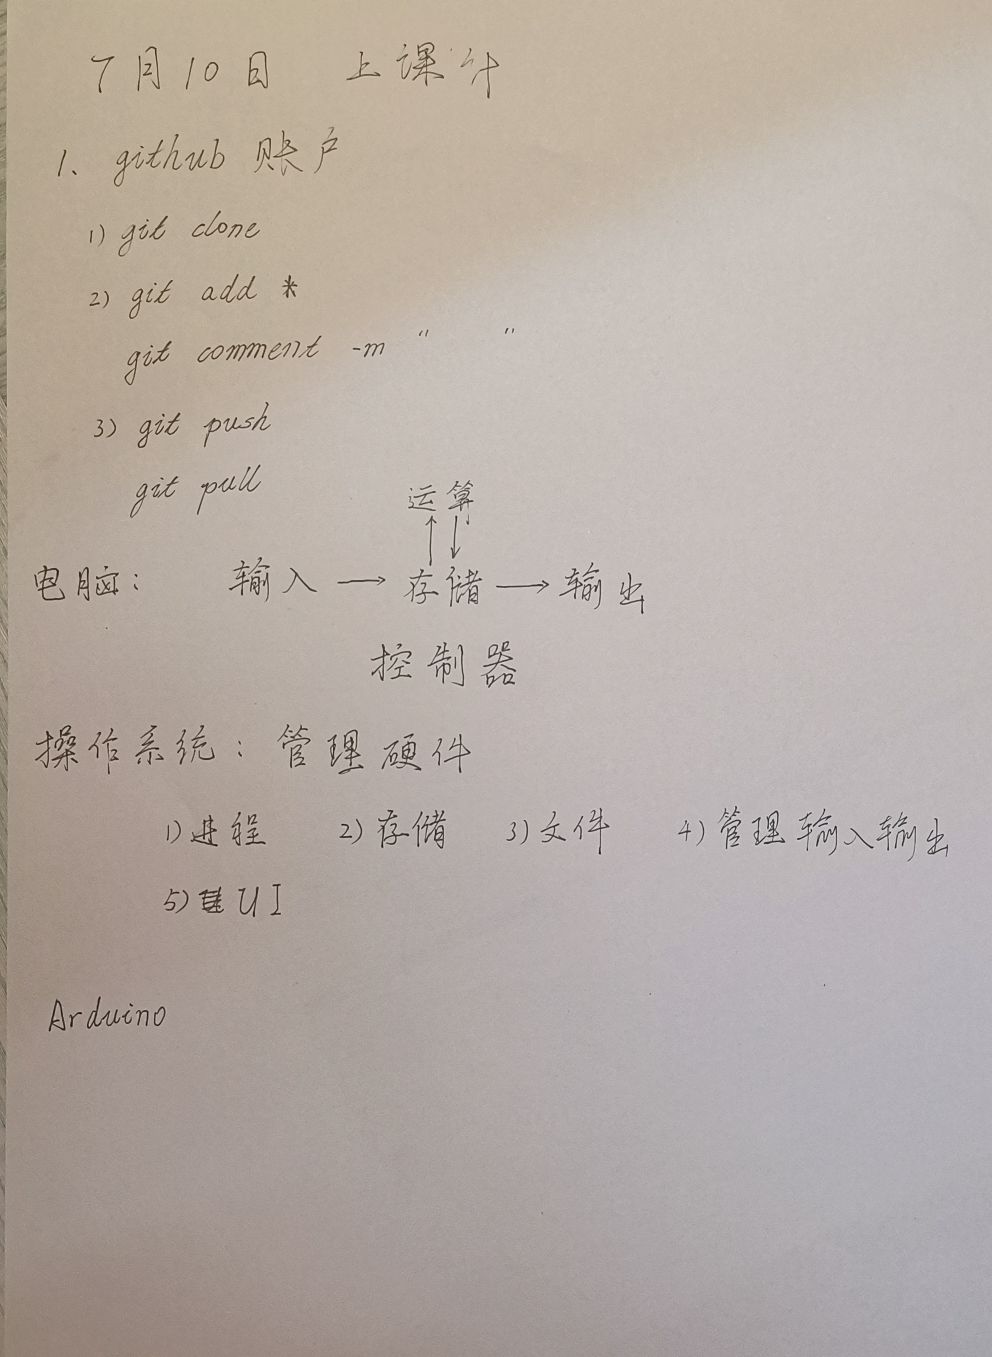 7月10日 上课
1、github 账户
1) git clone
2) git add *
git comment -m " "
3) git push
git pull
运算
电脑: 输入 → 存储 → 输出
控制器
操作系统: 管理硬件
1) 进程 2) 存储 3) 文件 4) 管理输入输出
5) UI
Arduino